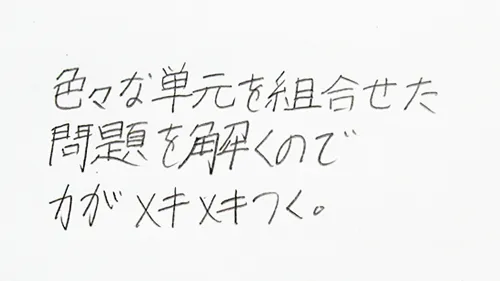 色々な単元を組合せた
問題を解くので
力がメキメキつく。